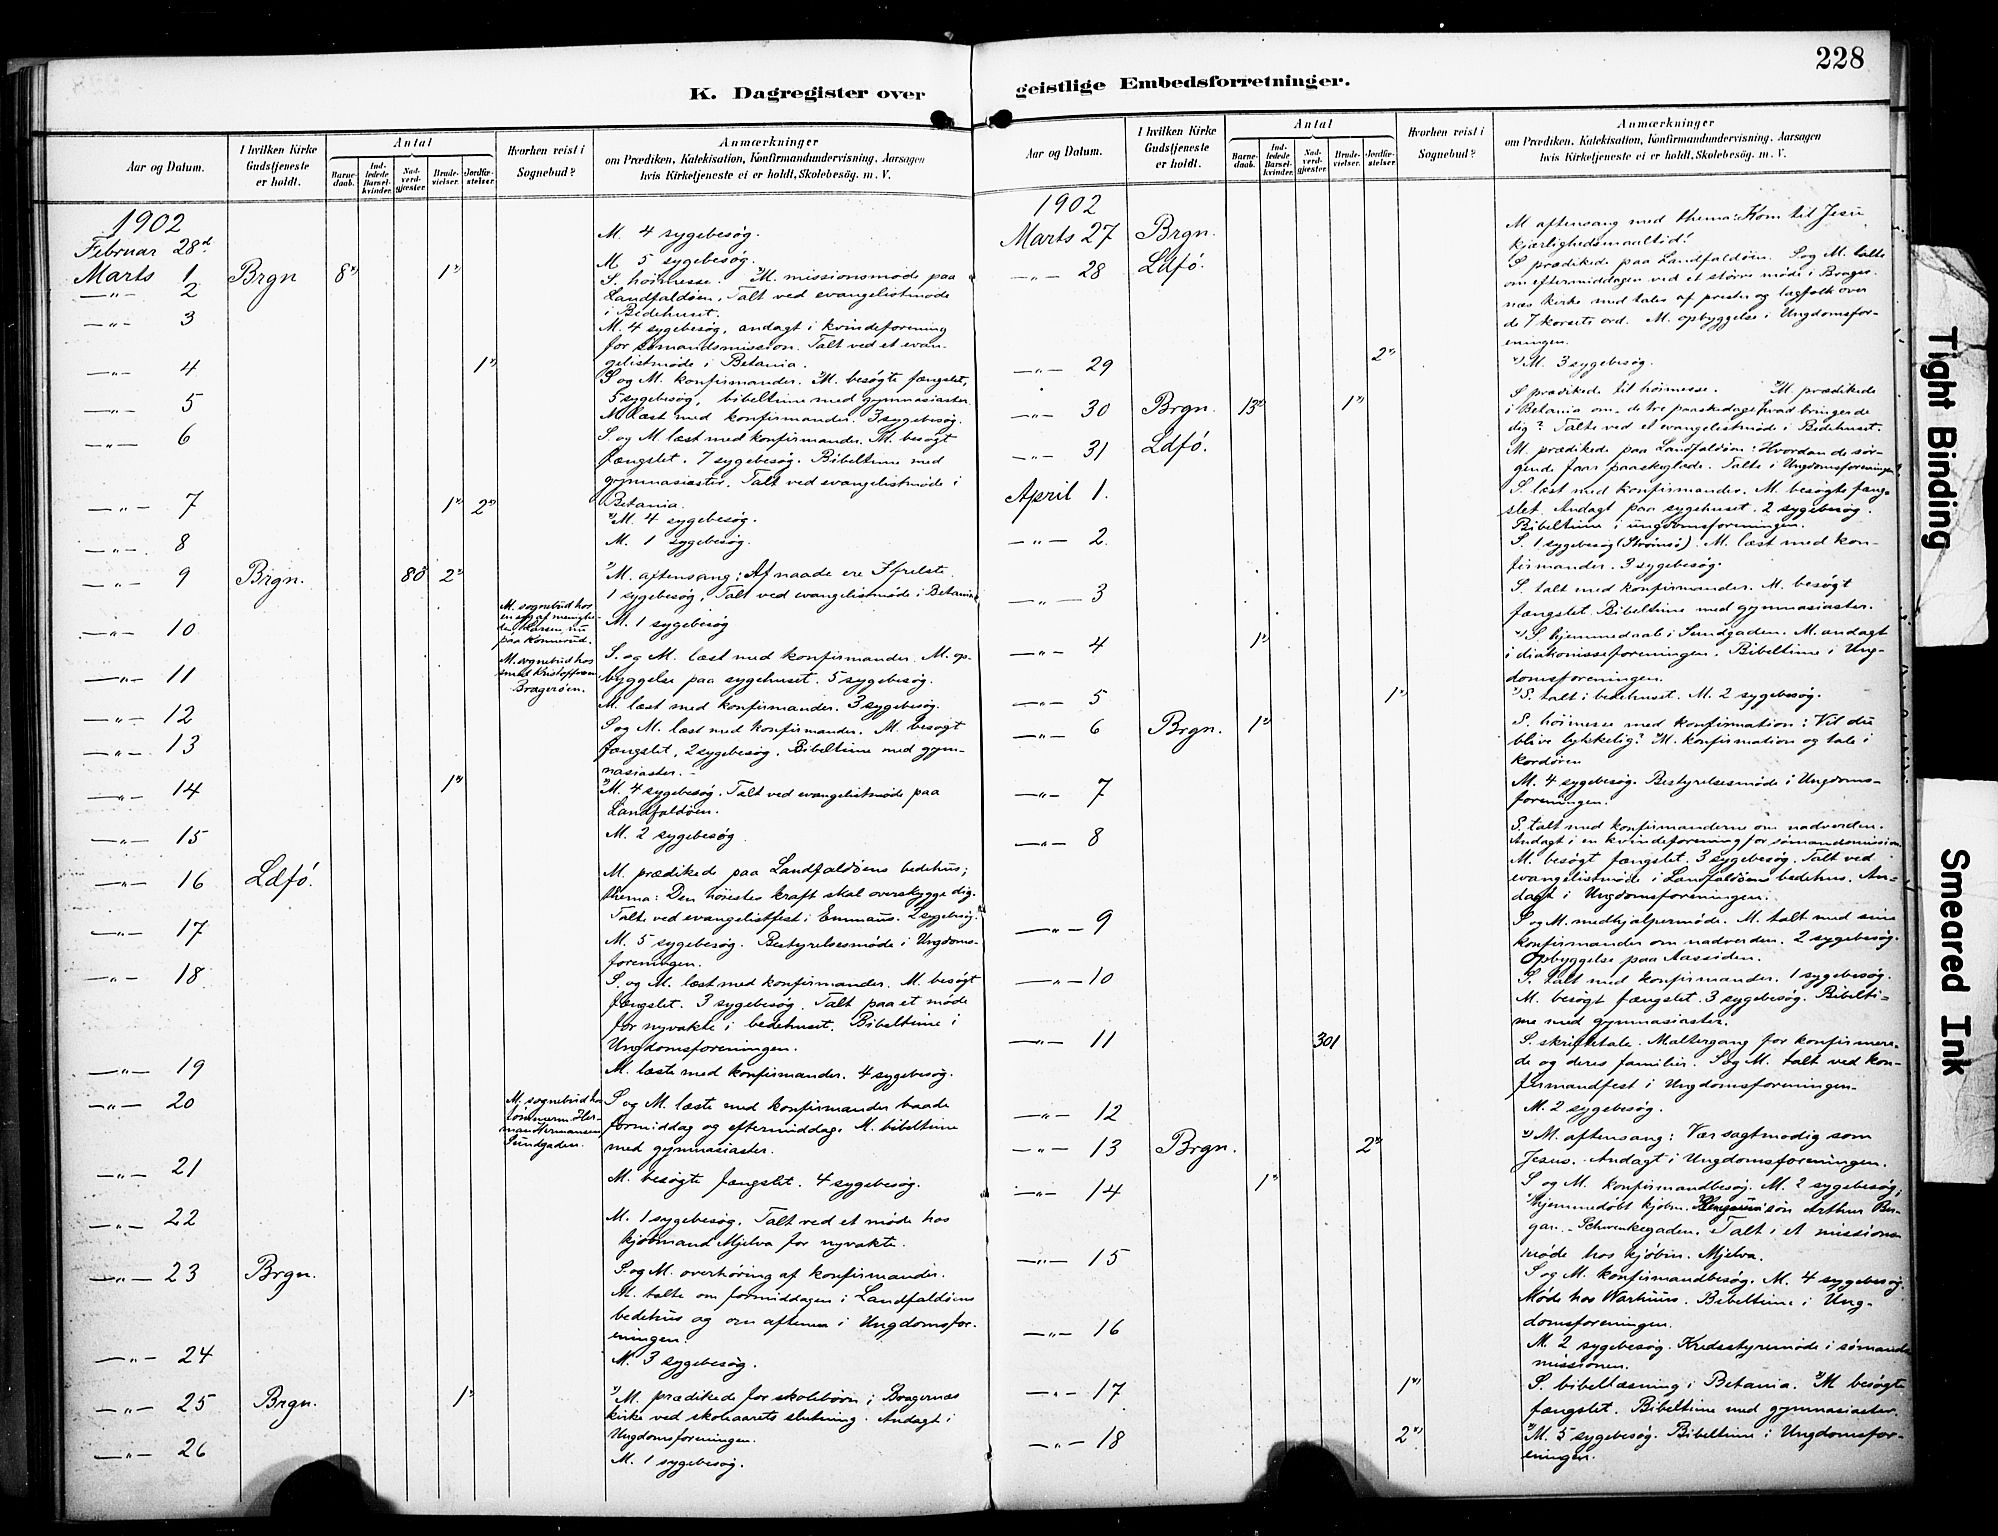 228
K. Dagregister over
geistlige Embedsforretninger.
Aar og Datum.
I hvilken Kirke Gudstjeneste er holdt.
Antal
Barnedaab.
Indledede Barselkvinder.
Nadverdgjæster
Brudevielser.
Jordfæstelser.
Hvorhen reist i Sognebud?
Anmærkninger
om Prædiken, Katekisation, Konfirmandundervisning, Aarsagen
hvis Kirketjeneste ei er holdt, Skolebesøg. m. V.
1902
Februar 28d M. 4 sygebesøg.
Marts 1 Brgn 8 1 M 5 sygebesøg.
—„— 2 S. høimesse. M. missionsmøde paa
Landfaldøen. Talt ved evangelistmøde
i Bedehuset.
—„— 3 M. 4 sygebesøg, andagt i kvindeforening
for sømandsmission. Talt ved et evan-
gelistmøde i Betania.
—„— 4 1 S og M. konfirmander. M. besøgte fængslet,
5 sygebesøg, bibeltime med gymnasiaster.
—„— 5 M. læst med konfirmander. 3 sygebesøg.
—„— 6 S. og M. læst med konfirmander. M. besøgt
fængslet. 7 sygebesøg. Bibeltime med
gymnasiaster. Talt ved evangelistmøde i
Betania.
—„— 7 1 2 M. 4 sygebesøg.
—„— 8 M. 1 sygebesøg.
—„— 9 Brgn. 80 2 M. aftensang: Af naade ere I frelste.
1 sygebesøg. Talt ved evangelistmøde i Betania
—„— 10 M. sognebud hos
paa Konnerud.
M. 1 sygebesøg
—„— 11 M. sognebud hos
smed Kristoffersen
Bragerøen.
S. og M. læst med konfirmander. M. op-
byggelse paa sygehuset. 5 sygebesøg.
—„— 12 M. læst med konfirmander. 3 sygebesøg.
—„— 13 S og M. læst med konfirmander. M. besøgt
fængslet, 2 sygebesøg. Bibeltime med gym-
nasiaster.
—„— 14 1 M. 4 sygebesøg. Talt ved evangelistmøde paa
Landfaldøen.
—„— 15 M. 2 sygebesøg
—„— 16 Ldfø. M. prædikede paa Landfaldøens bedehus;
thema: Den høiestes kraft skal overskygge dig.
Talte ved evangelistfest i Emmaus. 2 sygebesøg.
—„— 17 M. 5 sygebesøg. Bestyrelsesmøde i Ungdoms-
foreningen.
—„— 18 S. og M. læst med konfirmander. M. besøgt
fængslet. 3 sygebesøg. Talt paa et møde
for nyvakte i bedehuset. Bibeltime i
Ungdomsforeningen.
—„— 19 M. læste med konfirmander. 4 sygebesøg.
—„— 20 M. sognebud hos
tømmerm. Her-
man Hermansen
Sundgaden.
S og M. læste med konfirmander baade
formiddag og eftermiddag. M. bibeltime
med gymnasiaster.
—„— 21 M. besøgte fængslet. 4 sygebesøg.
—„— 22 M. 1 sygebesøg. Talt ved et møde hos
kjøbmand Mjelva for nyvakte.
—„— 23 Brgn. S. og M. overhøring af konfirmander.
M. talte om formiddagen i Landfaldøens
bedehus og om aftenen i Ungdomsfor-
eningen.
—„— 24 M. 3 sygebesøg.
—„— 25 Brgn. 1 M. prædikede for skolebørn i Bragernæs
kirke ved skoleaarets slutning. Andagt i
Ungdomsforeningen.
—„— 26 M. 1 sygebesøg.
Aar og Datum.
I hvilken Kirke Gudstjeneste er holdt.
Antal
Barnedaab.
Indledede Barselkvinder.
Nadverdgjæster
Brudevielser.
Jordfæstelser.
Hvorhen reist i Sognebud?
Anmærkninger
om Prædiken, Katekisation, Konfirmandundervisning, Aarsagen
hvis Kirketjeneste ei er holdt, Skolebesøg. m. V.
1902
Marts 27 Brgn. M aftensang med thema: Kom til Jesu
kjærlighedsmaaltid!
—„— 28 Ldfø. S prædikede paa Landfaldøen. S og M. talte
om eftermiddagen ved et større møde i Brager-
næs kirke med taler af prester og lægfolk over
de 7 korsets ord. M. opbyggelse i Ungdomsfor-
eningen.
—„— 29 2 M. 3 sygebesøg.
—„— 30 Brgn. 13 1 S prædikede til høimesse. M. prædikede
i Betania om „de tre paaskedage hvad bringer de
dig? Talte ved et evangelistmøde i Bedehuset.
—„— 31 Ldfø. M. prædikede paa Landfaldøen: Hvordan de sør-
gende faar paaskeglæde. Talte i Ungdomsforeningen.
April 1. S. læst med konfirmander. M. besøgte fæng-
slet. Andagt paa sygehuset. 2 sygebesøg.
Bibeltime i ungdomsforeningen.
—„— 2. S. 1 sygebesøg (Strømsø). M. læst med kon-
firmander. 3 sygebesøg.
—„— 3 S. talt med konfirmander. M. besøgt
fængslet. Bibeltime med gymnasiaster.
—„— 4 1 S. hjemmedaab i Sundgaden. M. andagt
i diakonisseforeningen. Bibeltime i Ung-
domsforeningen.
—„— 5 1 S. talt i bedehuset. M. 2 sygebesøg.
—„— 6 Brgn. 1 S. høimesse med konfirmation: Vil du
blive lykkelig? M. konfirmation og tale i
kordøren
—„— 7 M. 4 sygebesøg. Bestyrelsesmøde i Ungdoms-
foreningen.
—„— 8 S. talt med konfirmanderne om nadverden.
Andagt i en kvindeforening for sømandsmission
M. besøgt fængslet. 3 sygebesøg. Talt ved
evangelistmøde i Landfaldøens bedehus. An-
dagt i Ungdomsforeningen.
—„— 9 S og M. medhjælpermøde. M. talt med sine
konfirmander om nadverden. 2 sygebesøg.
Opbyggelse paa Aassiden.
—„— 10 S. talt med konfirmander. 1 sygebesøg.
M. besøgt fængslet. 3 sygebesøg. Bibelti-
me med gymnasiaster.
—„— 11 301 S. skriftetale. Altergang for konfirmere-
de og deres familier. S og M. talt ved kon-
firmandfest i Ungdomsforeningen.
—„— 12 M. 2 sygebesøg.
—„— 13 Brgn. 2 M. aftensang: Vær sagtmodig som
Jesus. Andagt i Ungdomsforeningen.
—„— 14 1 S og M. konfirmandbesøg. M. 2 sygebesøg;
hjemmedøbt kjøbm. søn Arthur
Schwenkegaden. Talt i et missions
møde hos kjøbm. Mjelva.
—„— 15 S og M. konfirmandbesøg. M. 4 sygebesøg.
Møde hos Warhuus. Bibeltime i Ung-
domsforeningen.
—„— 16 M. 2 sygebesøg. Kredsstyremøde i sømands
missionen.
—„— 17 1 S. bibellæsning i Betania. M besøgte
fængslet. Bibeltime med gymnasiaster.
—„— 18 2 M. 5 sygebesøg. Bibeltime i Ungdomsfor-
eningen.
Tight Binding
Smeared Ink